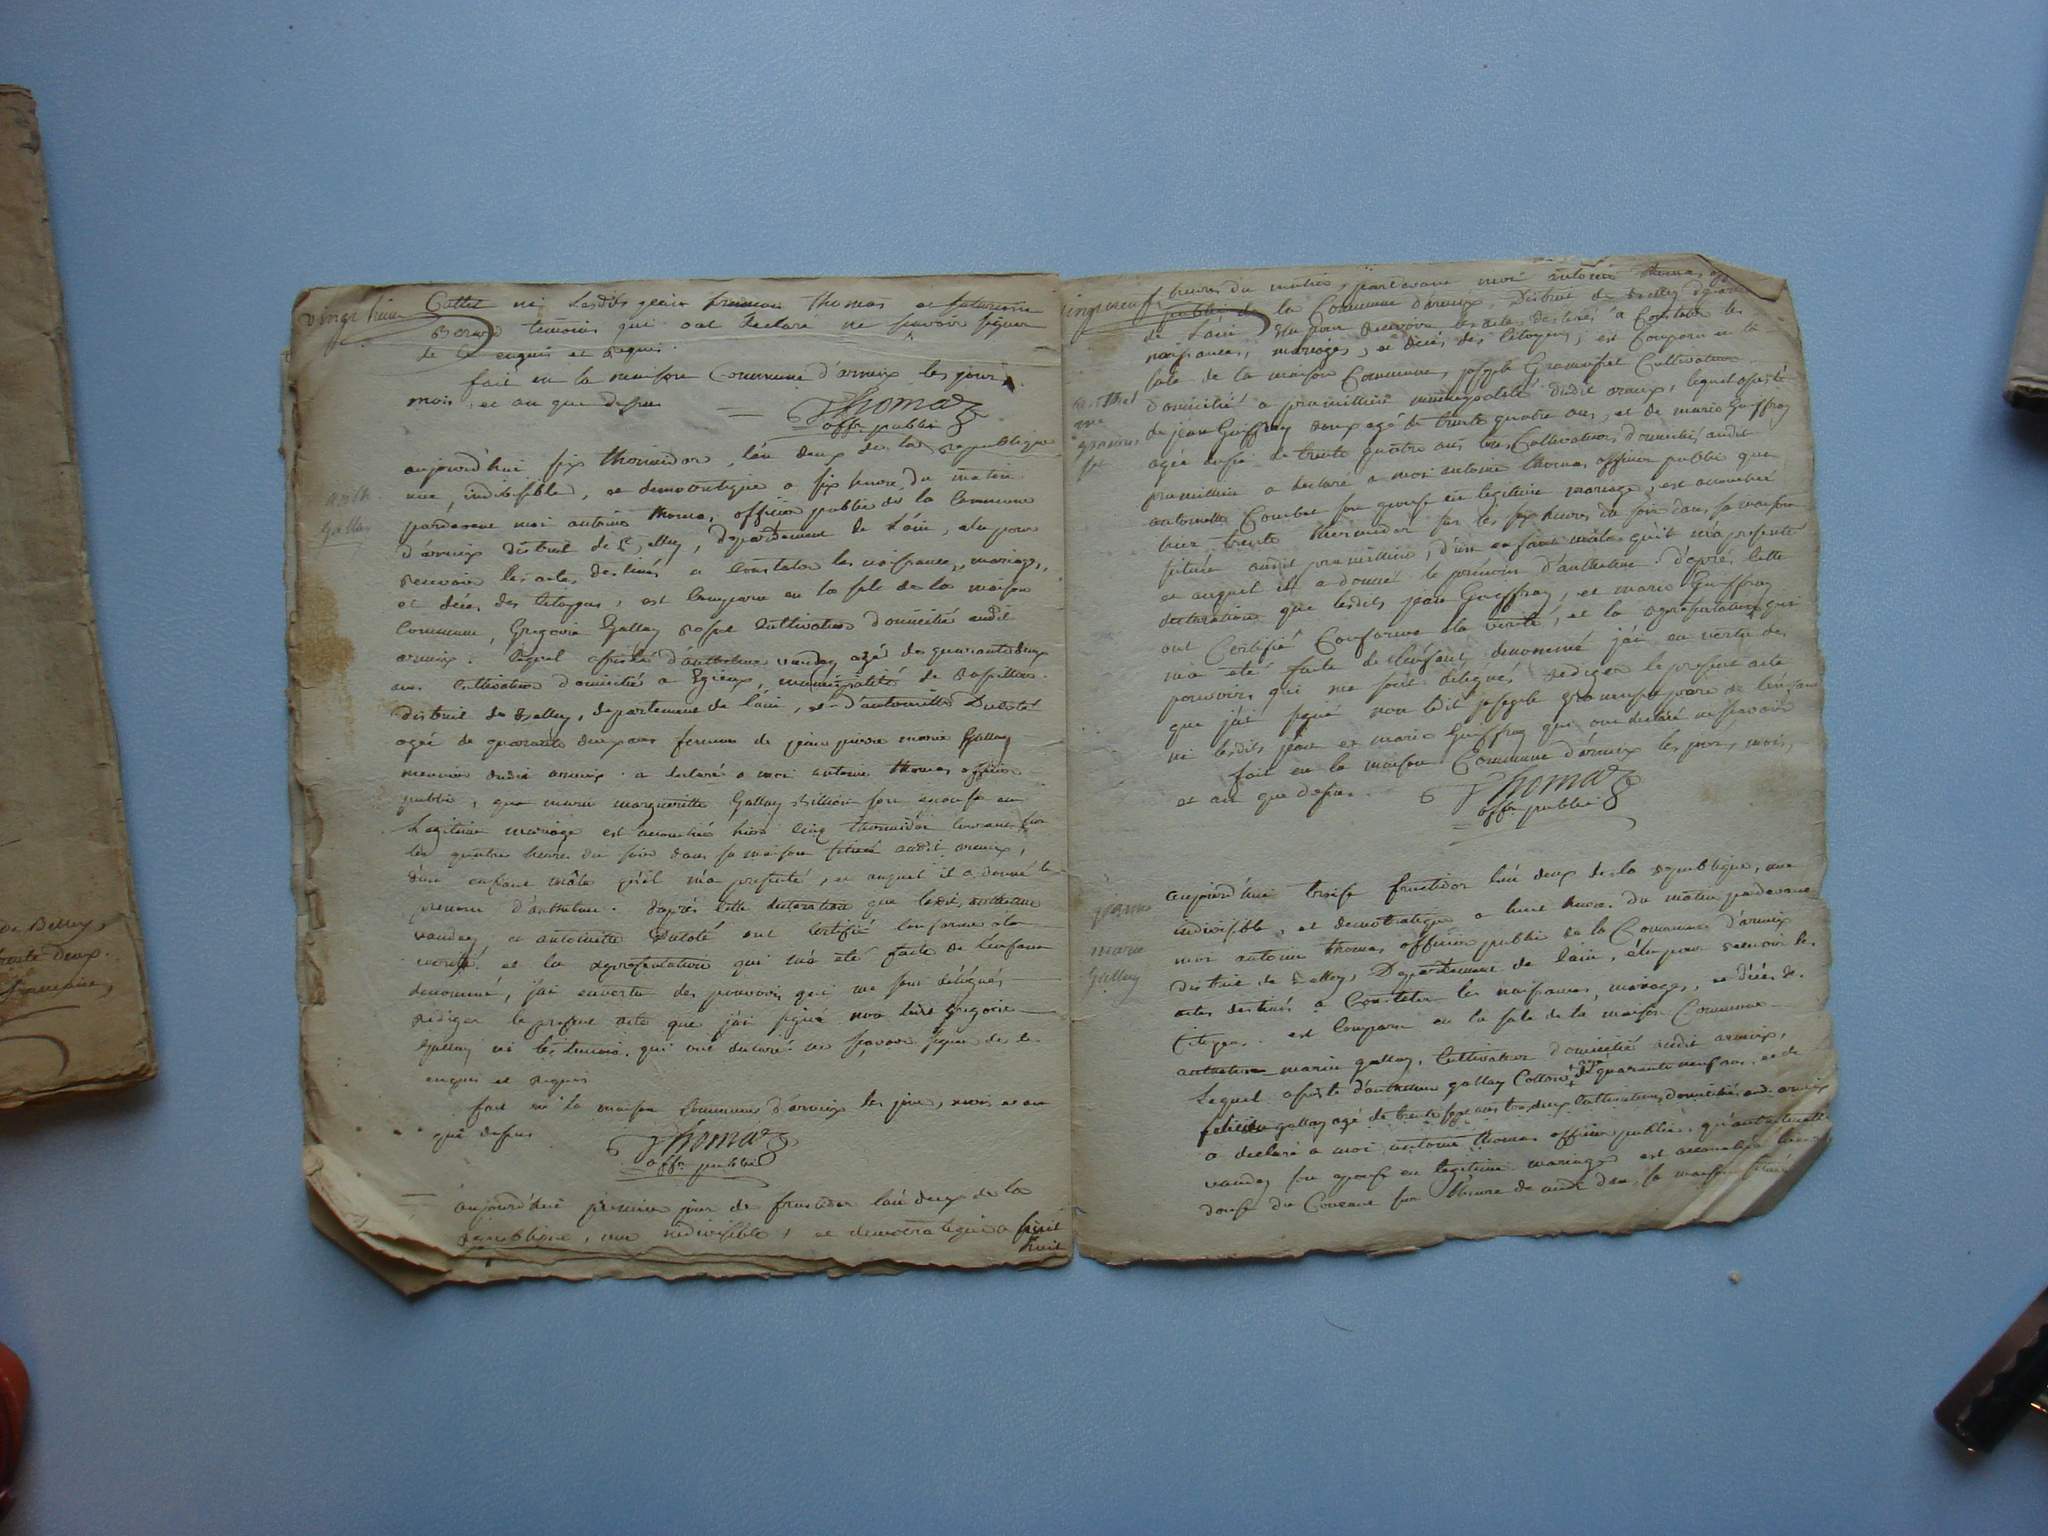 vingt huit
Collet ni lesdits jean thomas et
temoins qui ont declaré ne scavoir signer
de ce enquis et requis.
fait en la maison commune d'arneix les jour,
mois et an que dessus
Thomas
offr. public
aujourd'hui six thermidor l'an deux de la republique
une, indivisible, et democratique a six heures du matin
pardevant moi antoine thomas, officier public de la commune
d'arneix district de Belley, departement de l'ain, elu pour
recevoir les actes destinés a constater les naissances, mariages,
et décès des citoyens, est comparu en la sale de la maison
commune, Gregoire Gallay cultivateur domicilié audit
arneix. lequel assisté d'anthelme vauday agé de quarante deux
ans cultivateur domicilié a Egieux, municipalité de rossillon
district de Belley, departement de l'ain, et d'antoinette Dutoté
agée de quarante deux ans femme de jean pierre marie Gallay
meunier audit arneix. a declaré a moi antoine thomas officier
public, que marie margueritte Gallay billion son epouse en
legitime mariage est accouchée hier cinq thermidor courant sur
les quatre heures du soir dans sa maison située audit arneix,
d'un enfant mâle qu'il m'a presenté, et auquel il a donné le
prenom d'anthelme. d'après cette declaration que lesdits anthelme
vauday, et antoinette Dutoté ont certifié conforme à la
verité, et la representation qui m'a été faite de l'enfant
denommé, j'ai en vertu des pouvoirs qui me sont délégués
rediger le present acte que j'ai signé non ledit gregoire
Gallay ni les temoins qui ont declaré ne scavoir signer de ce
enquis et requis
fait en la maison commune d'arneix les jour, mois et an
que dessus
Thomas
offr. public
aujourd'hui premier jour de fructidor l'an deux de la
republique, une indivisible, et democratique a
huit
anth.
Gallay
vingt neuf
heures du matin, pardevant moi antoine thomas
public de la commune d'arneix, district de Belley
de l'ain elu pour recevoir les actes destinés a constater les
naissances, mariages, et décès des citoyens, est comparu en la
sale de la maison commune, joseph Gramusset cultivateur
domicilié a premillieu municipalité dudit arneix, lequel assisté
de jean Guiffray agé de trente quatre ans, et de marie Guiffray
agée aussi de trente quatre ans tous cultivateurs domiciliés audit
premillieu a declaré a moi antoine thomas officier public que
antoinette Combet son epouse en legitime mariage, est accouchée
hier trente thermidor sur les six heures du soir dans sa maison
située audit premillieu, d'un enfant mâle qu'il m'a presenté
et auquel il a donné le prénom d'anthelme. d'après cette
declaration que lesdits jean Guiffray, et marie Guiffray
ont certifié conforme a la verité, et la representation qui
m'a été faite de l'enfant denommé j'ai en vertu des
pouvoirs qui me sont délégués rediger le present acte
que j'ai signé non ledit joseph Gramusset pere de l'enfant
ni lesdits jean et marie Guiffray qui ont declaré ne scavoir
fait en la maison commune d'arneix les jour, mois,
et an que dessus.
Thomas
offr. public
aujourd'hui treize fructidor l'an deux de la republique, une
indivisible, et democratique a huit heures du matin pardevant
moi antoine thomas, officier public de la commune d'arneix
district de Belley, Departement de l'ain, élu pour recevoir les
actes destinés a constater les naissances, mariages, et décès des
citoyens. est comparu en la sale de la maison commune
marin gallay, cultivateur domicilié audit arneix,
lequel assisté d'anthelme gallay agé de quarante neuf ans, et de
gallay agé de trente ans tous deux cultivateurs domiciliés aud. arneix
a declaré a moi antoine thomas officier public, qu'antoinette
vauday son epouse en legitime mariage est accouchée hier
douse du courant sur l'heure de midi dans sa maison située
gramus
set
jeanne
marie
Gallay
de Belley,
trente deux.